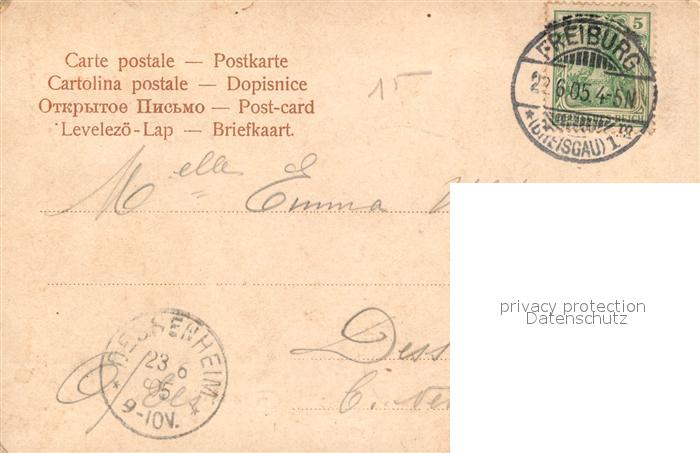 Carte postale — Postkarte
Cartolina postale — Dopisnice
Открытое Письмо — Post-card
Levelező-Lap — Briefkaart.
15
5
REICH
FREIBURG
22.6.05.4-5N
*(BREISGAU) 1*
Melle Emma
privacy protection
Datenschutz
HESSENHEIM
23 6
05
9-10V.
Dess